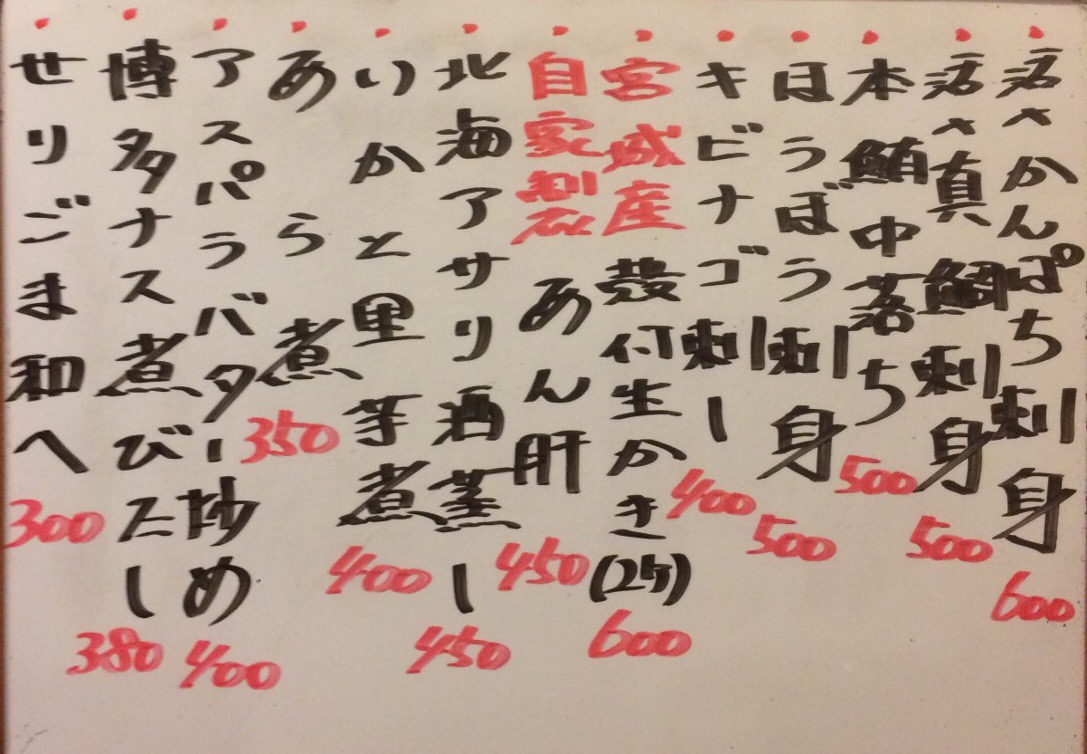 活〆かんぱち刺身 600
活〆真鯛刺身 500
本鮪中落ち 500
ほうぼう刺身 500
キビナゴ刺し 400
宮城産殻付生かき(2ケ) 600
自家製あん肝 450
北海アサリ酒蒸し 450
いかと里芋煮 400
あら煮 350
アスパラバター炒め 400
博多ナス煮びたし 380
せりごま和へ 300